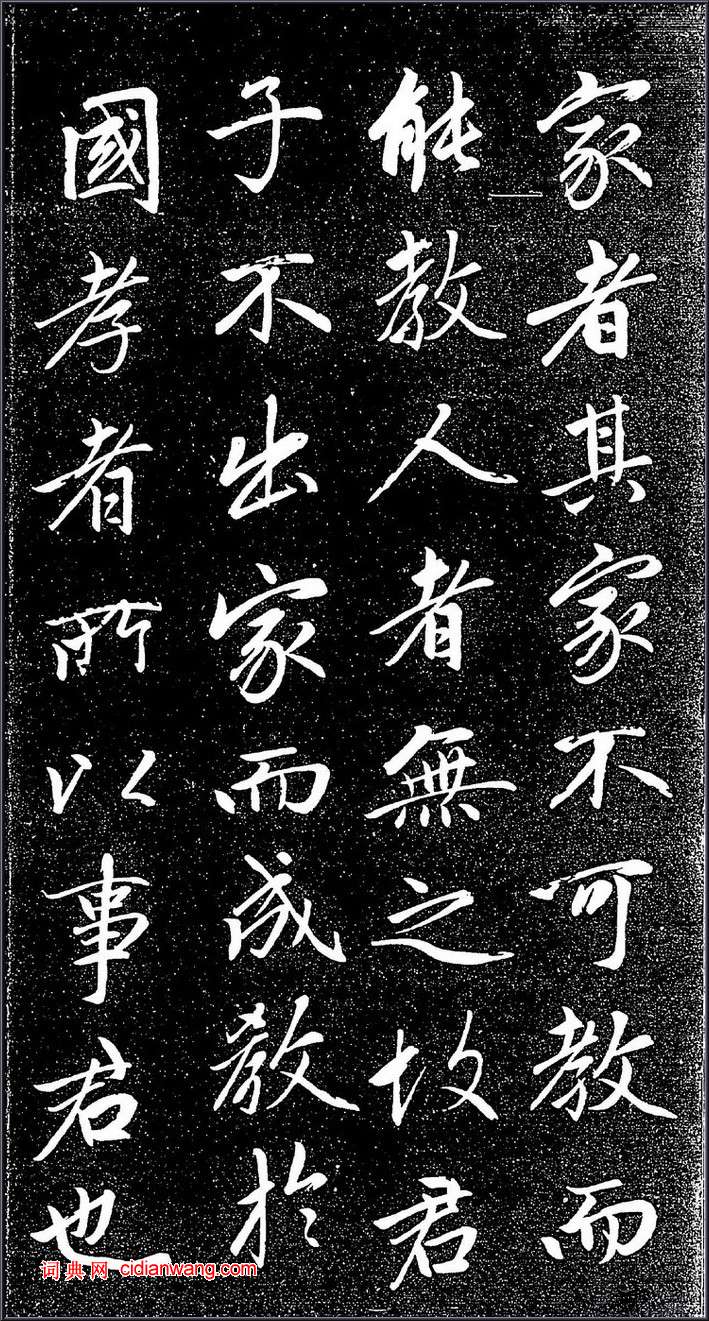 家者其家不可教而
能教人者無之故君
子不出家而成教於
國孝者所以事君也
词典网 cidianwang.com